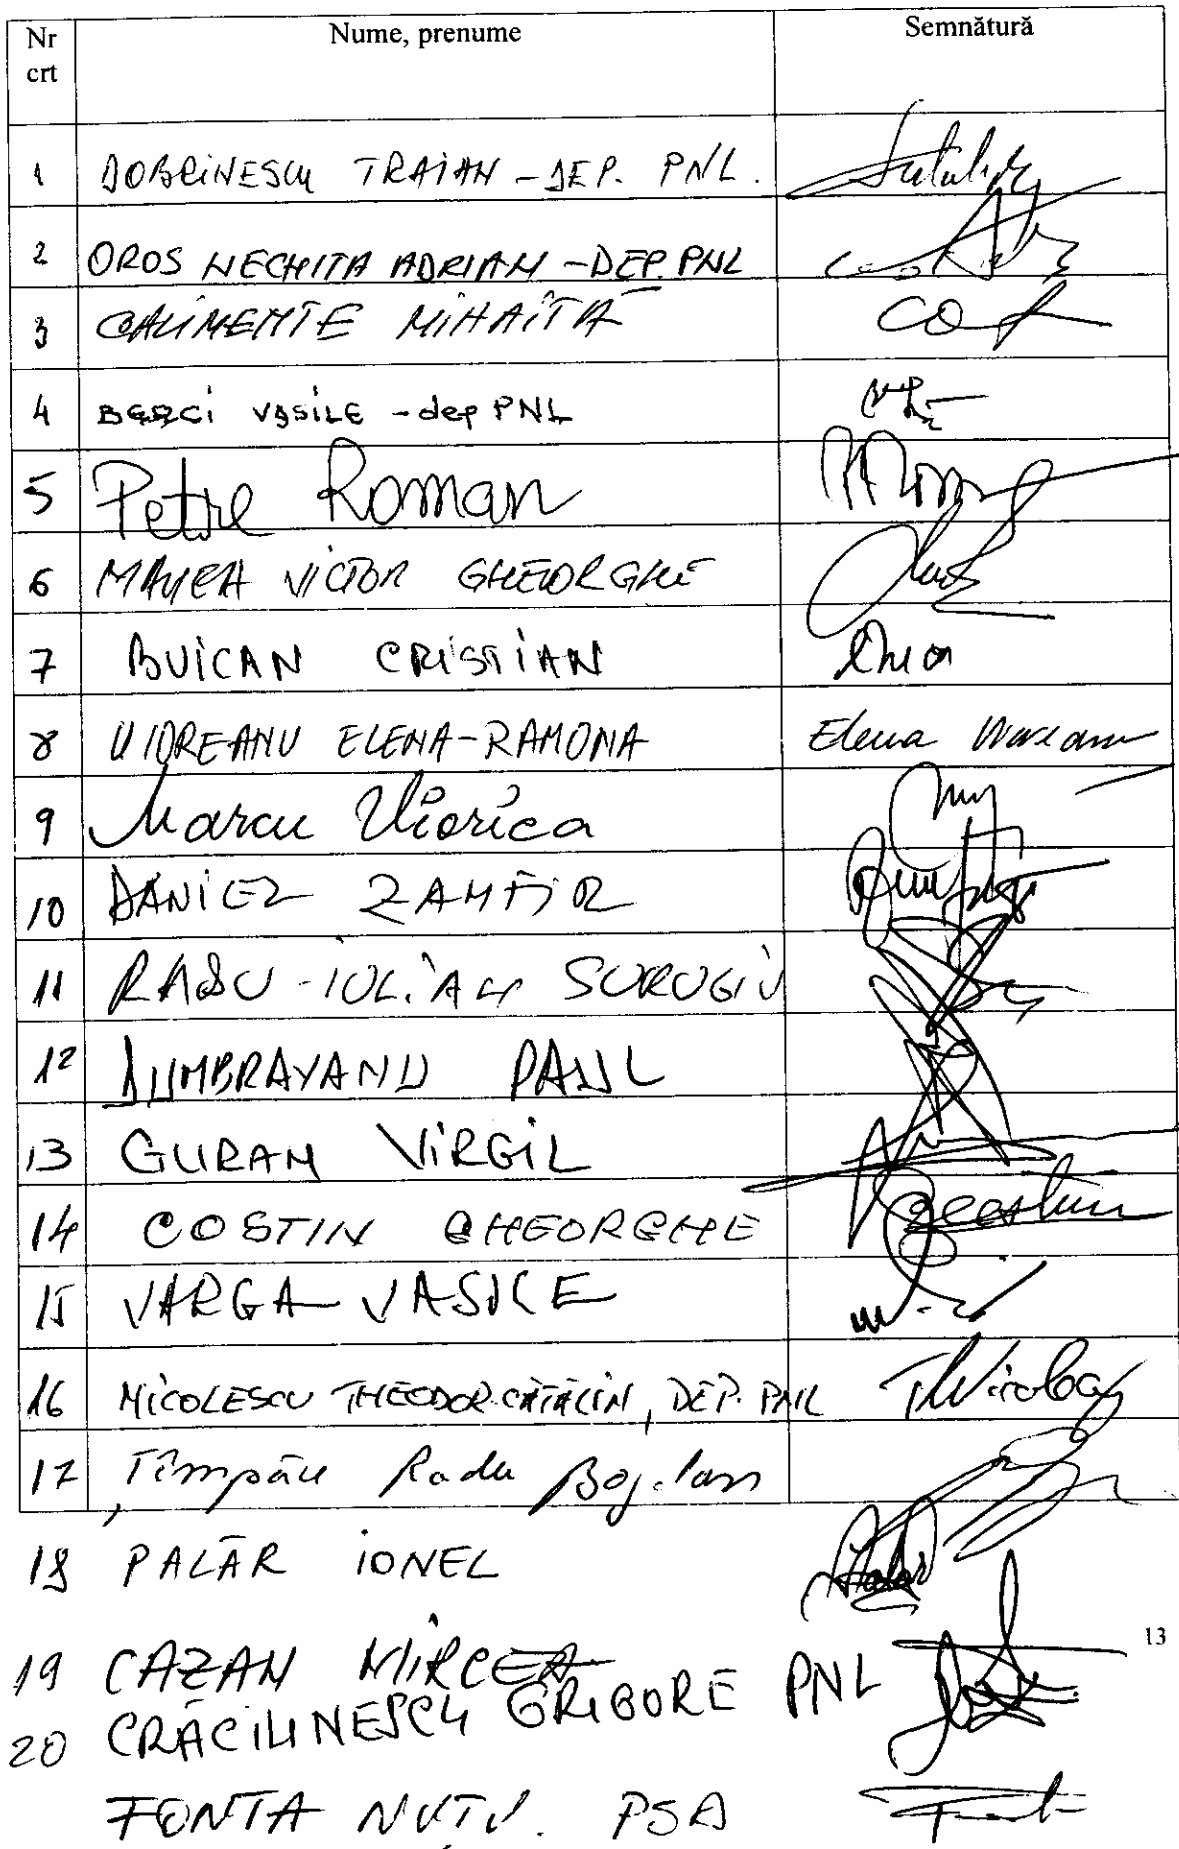 Nr crt Nume, prenume Semnătură
1 DOBRINESCU TRAIAN - DEP. PNL.
2 OROS NECHITA ADRIAN - DEP. PNL
3 CALIMENTE MIHĂIȚĂ
4 BERCI VASILE - dep PNL
5 Petre Roman
6 MANEA VICTOR GHEORGHE
7 BUICAN CRISTIAN
8 VIOREANU ELENA-RAMONA Elena
9 Marcu Viorica
10 DANIEL ZAMFIR
11 RADU-IULIAN SURUGIU
12 DUMBRAVANU PAUL
13 GURAN VIRGIL
14 COSTIN GHEORGHE
15 VARGA VASILE
16 NICOLESCU THEODOR-CĂTĂLIN, DEP. PNL
17 Țîmpău Radu Bogdan
18 PALĂR IONEL
19 CAZAN MIRCEA
20 CRĂCIUNESCU GRIGORE PNL
FONTA NUȚU. PSD
13